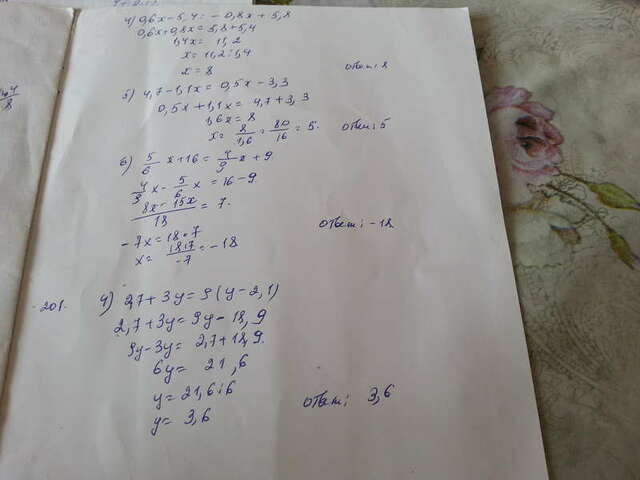 4) 0,6x-5,4=-0,8x+5,8
0,6x+0,8x=5,8+5,4
1,4x= 11,2
x= 11,2:1,4
x= 8 ответ: 8
5) 4,7-1,1x= 0,5x-3,3
0,5x+1,1x= 4,7+3,3
1,6x= 8
x= 8/1,6 = 80/16 = 5. ответ: 5
6) 5/6 x+16= 4/9 x+9
4/9 x- 5/6 x = 16-9
8x-15x/18 = 7.
-7x=18·7
x= 18·7/-7 = -18 ответ: -18
201. 4) 2,7+3y=9(y-2,1)
2,7+3y=9y-18,9
9y-3y= 2,7+18,9.
6y= 21,6
y= 21,6:6
y= 3,6 ответ: 3,6